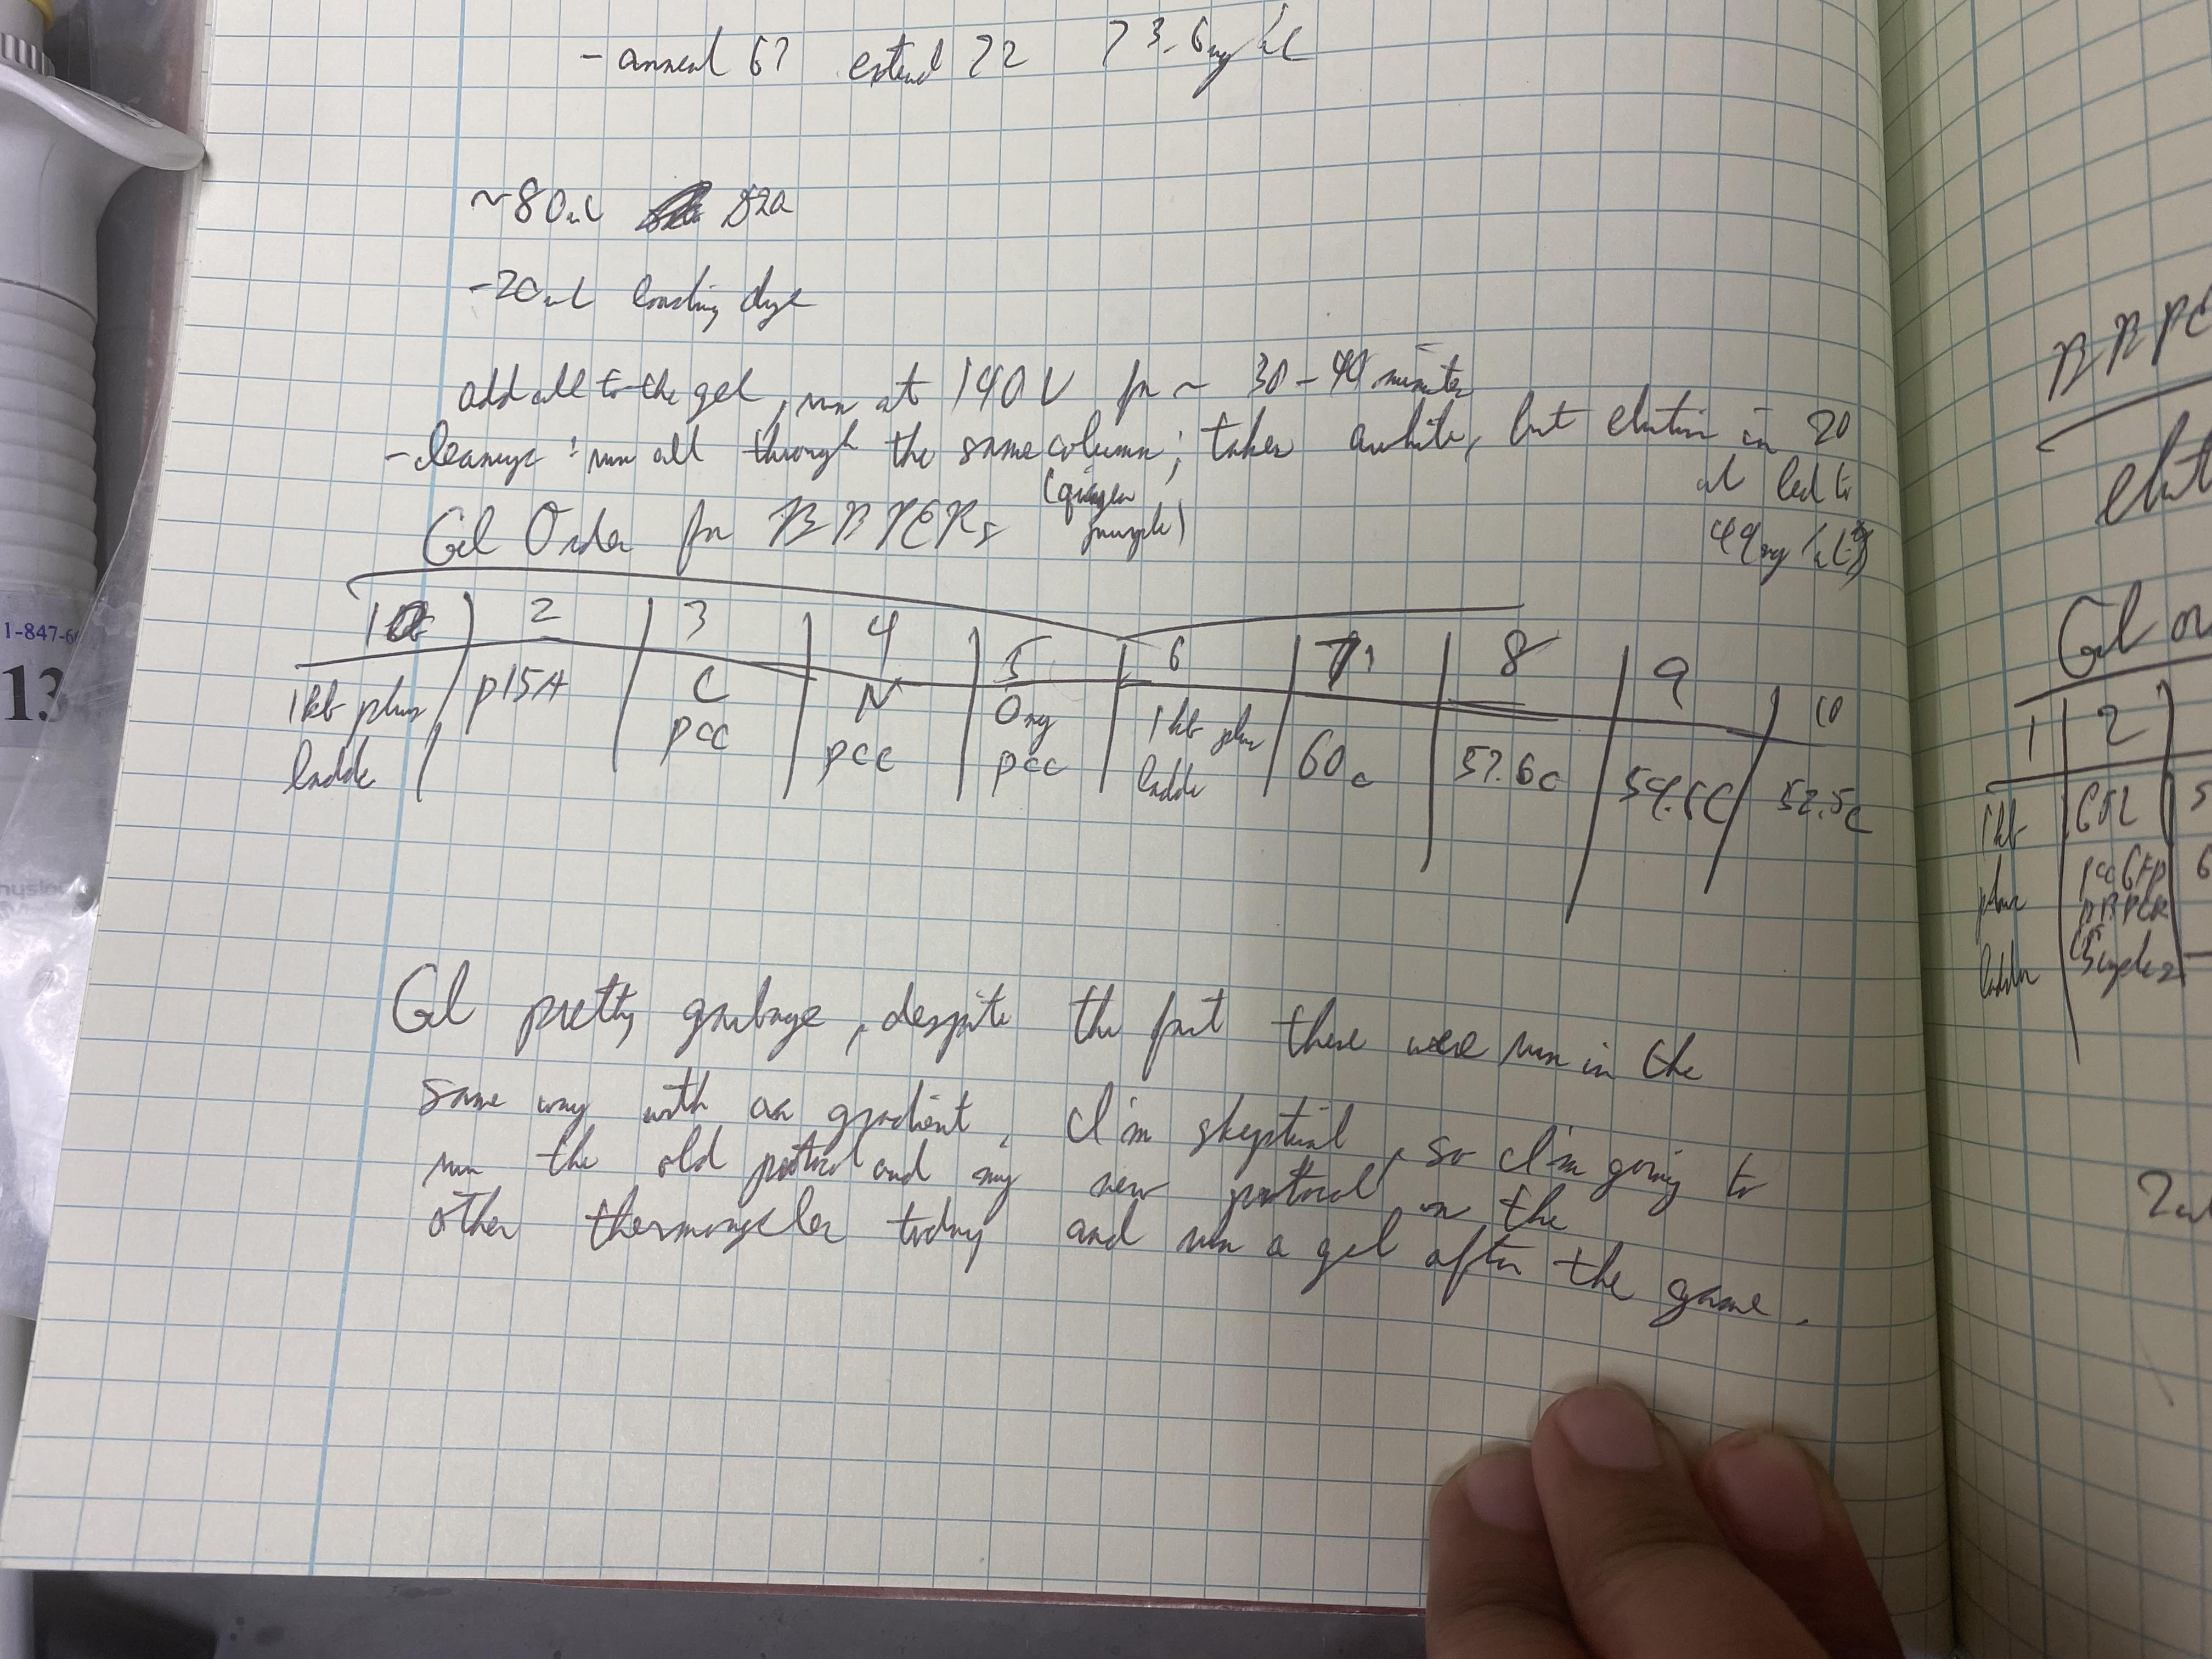 - anneal 67 extend 72 73.6 ng/ul
~80ul
-20ul loading dye
add all to the gel, run at 140V for ~ 30-40 minutes
-cleanup: run all through the same column; takes awhile, but elution in 20
ul led to
(qiagen
purple)
49ng/ul
Gel Order for BBPCRs
1 2 3 4 5 6 7 8 9 10
1kb plus p15A C N Ong 1kb plus 60c 57.6c 54.6C 52.5c
ladder pcc pcc pcc ladder
Gel pretty garbage, despite the fact these were run in the
same way with a gradient, I'm skeptical, so I'm going to
run the old protocol and my new protocol on the
other thermocycler today and run a gel after the game.
BBPC
elut
Gel or
1 2
1kb
plus pccGFP
BBPCR
ladder cycles
2ul
1-847-6
13